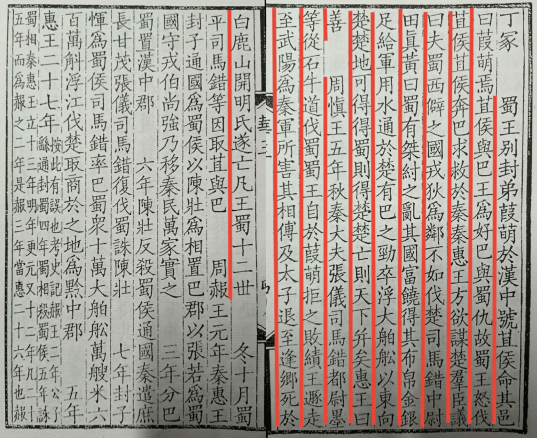 丁冢　蜀王別封弟葭萌於漢中號苴侯命其邑
曰葭萌焉苴侯與巴王為好巴與蜀仇故蜀王怒伐
苴侯苴侯奔巴求救於秦秦惠王方欲謀楚羣臣議
曰夫蜀西僻之國戎狄為鄰不如伐楚司馬錯中尉
田真黃曰蜀有桀紂之亂其國富饒得其布帛金銀
足給軍用水通於楚有巴之勁卒浮大舶船以東向
楚楚地可得得蜀則得楚楚亡則天下并矣惠王曰
善　周慎王五年秋秦大夫張儀司馬錯都尉墨
等從石牛道伐蜀蜀王自於葭萌拒之敗績王遯走
至武陽為秦軍所害其相傅及太子退至逢鄉死於
白鹿山開明氏遂亡凡王蜀十二世　冬十月蜀
平司馬錯等因取苴與巴　周赧王元年秦惠王
封子通國為蜀侯以陳壯為相置巴郡以張若為蜀
國守戎伯尚強乃移秦民萬家實之　三年分巴
蜀置漢中郡　六年陳壯反殺蜀侯通國秦遣庶
長甘茂張儀司馬錯復伐蜀誅陳壯　七年封子
惲為蜀侯司馬錯率巴蜀眾十萬大舶船萬艘米六
百萬斛浮江伐楚取商於之地為黔中郡　五年
惠王二十七年
按此有誤也考史記赧王二年公子
通封蜀四年蜀相殺蜀侯五年誅
蜀相秦惠王立十三年明年更元又十年凡二十
五年而為赧之二年是赧三年當惠二十六年也赧